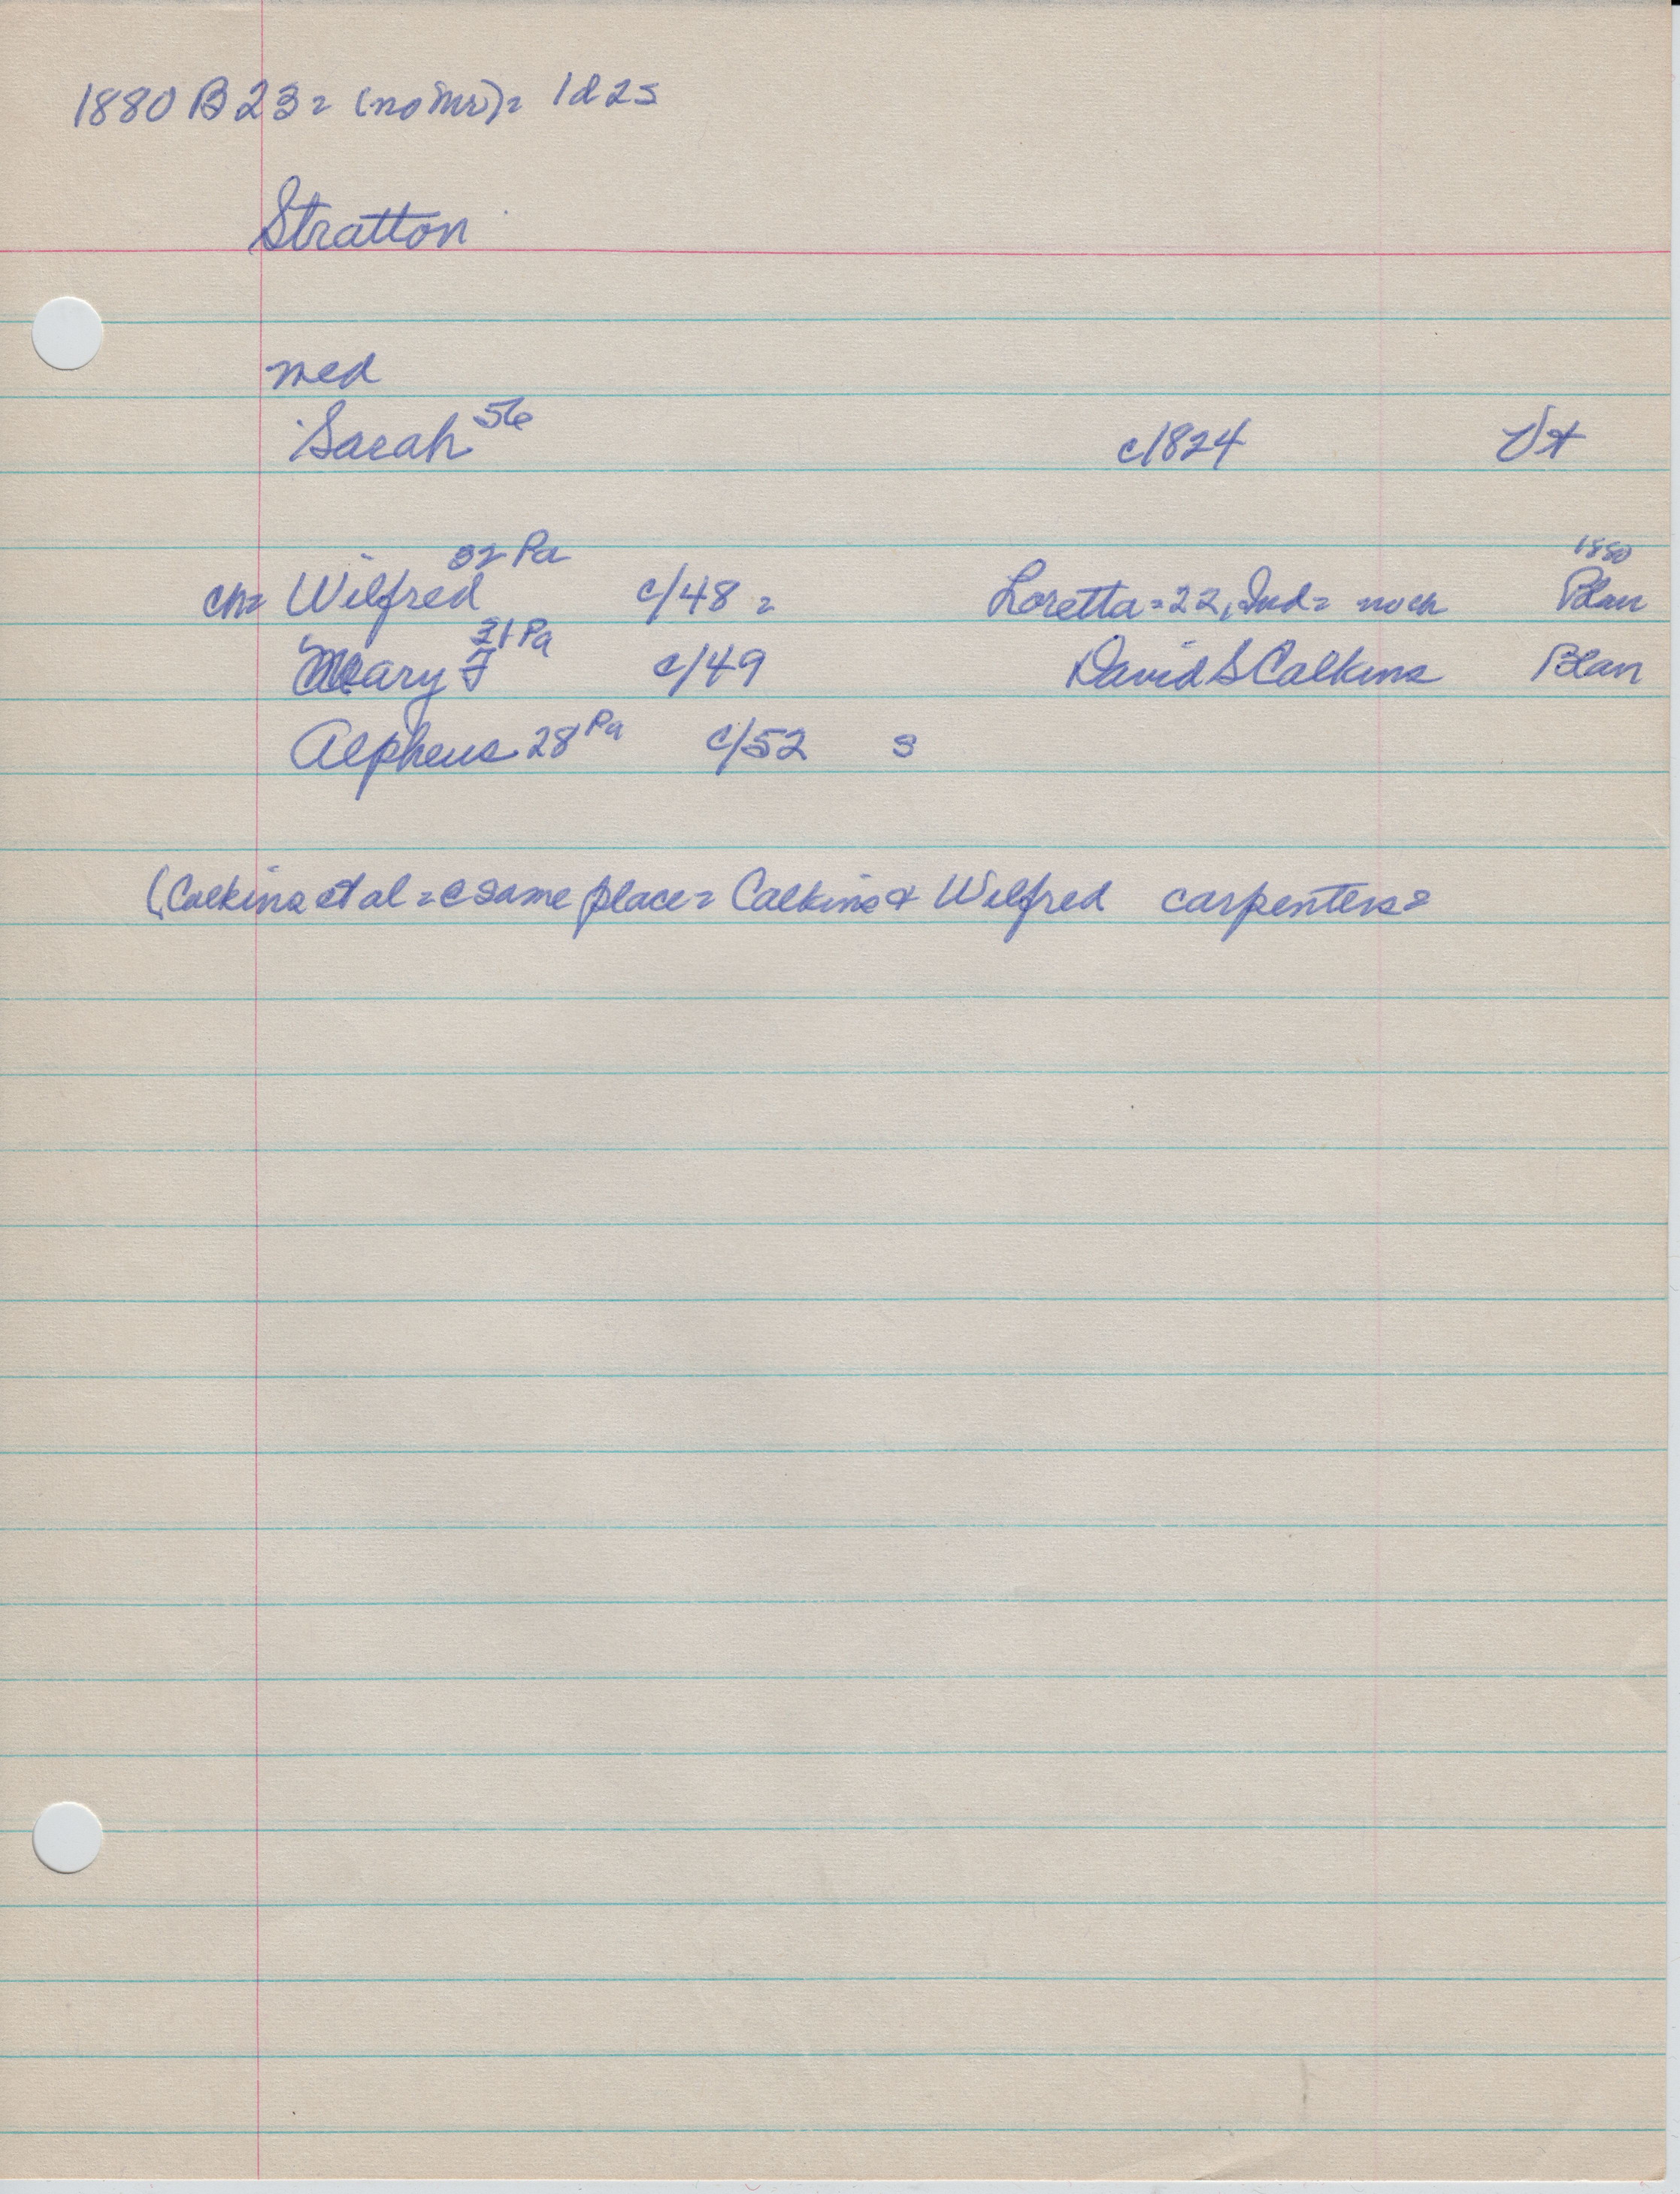 1880 B 23 = (no Mr) = 1d 2s
Stratton
med
Sarah 56 c/1824 Vt
ch= Wilfred 32 Pa c/48 = Loretta = 22, Ind = no ch 1880 Blan
Mary F 31 Pa c/49 David S Calkins Blan
Alpheus 28 Pa c/52 s
(Calkins et al = @ same place = Calkins & Wilfred carpenters =